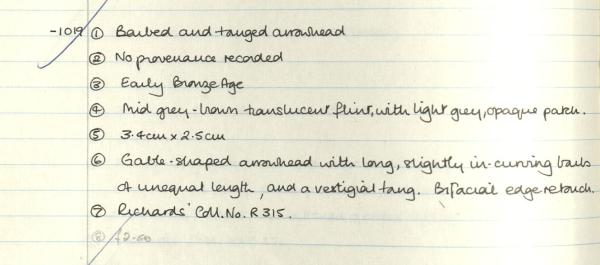 -1019 ① Barbed and tanged arrowhead
② No provenance recorded
③ Early Bronze Age
④ Mid grey-brown translucent flint, with light grey, opaque patch.
⑤ 3.4cm x 2.5cm
⑥ Gable-shaped arrowhead with long, slightly in-curving barbs
of unequal length, and a vestigial tang. Bifacial edge retouch.
⑦ Richards' Coll. No. R315.
⑧ £2-50